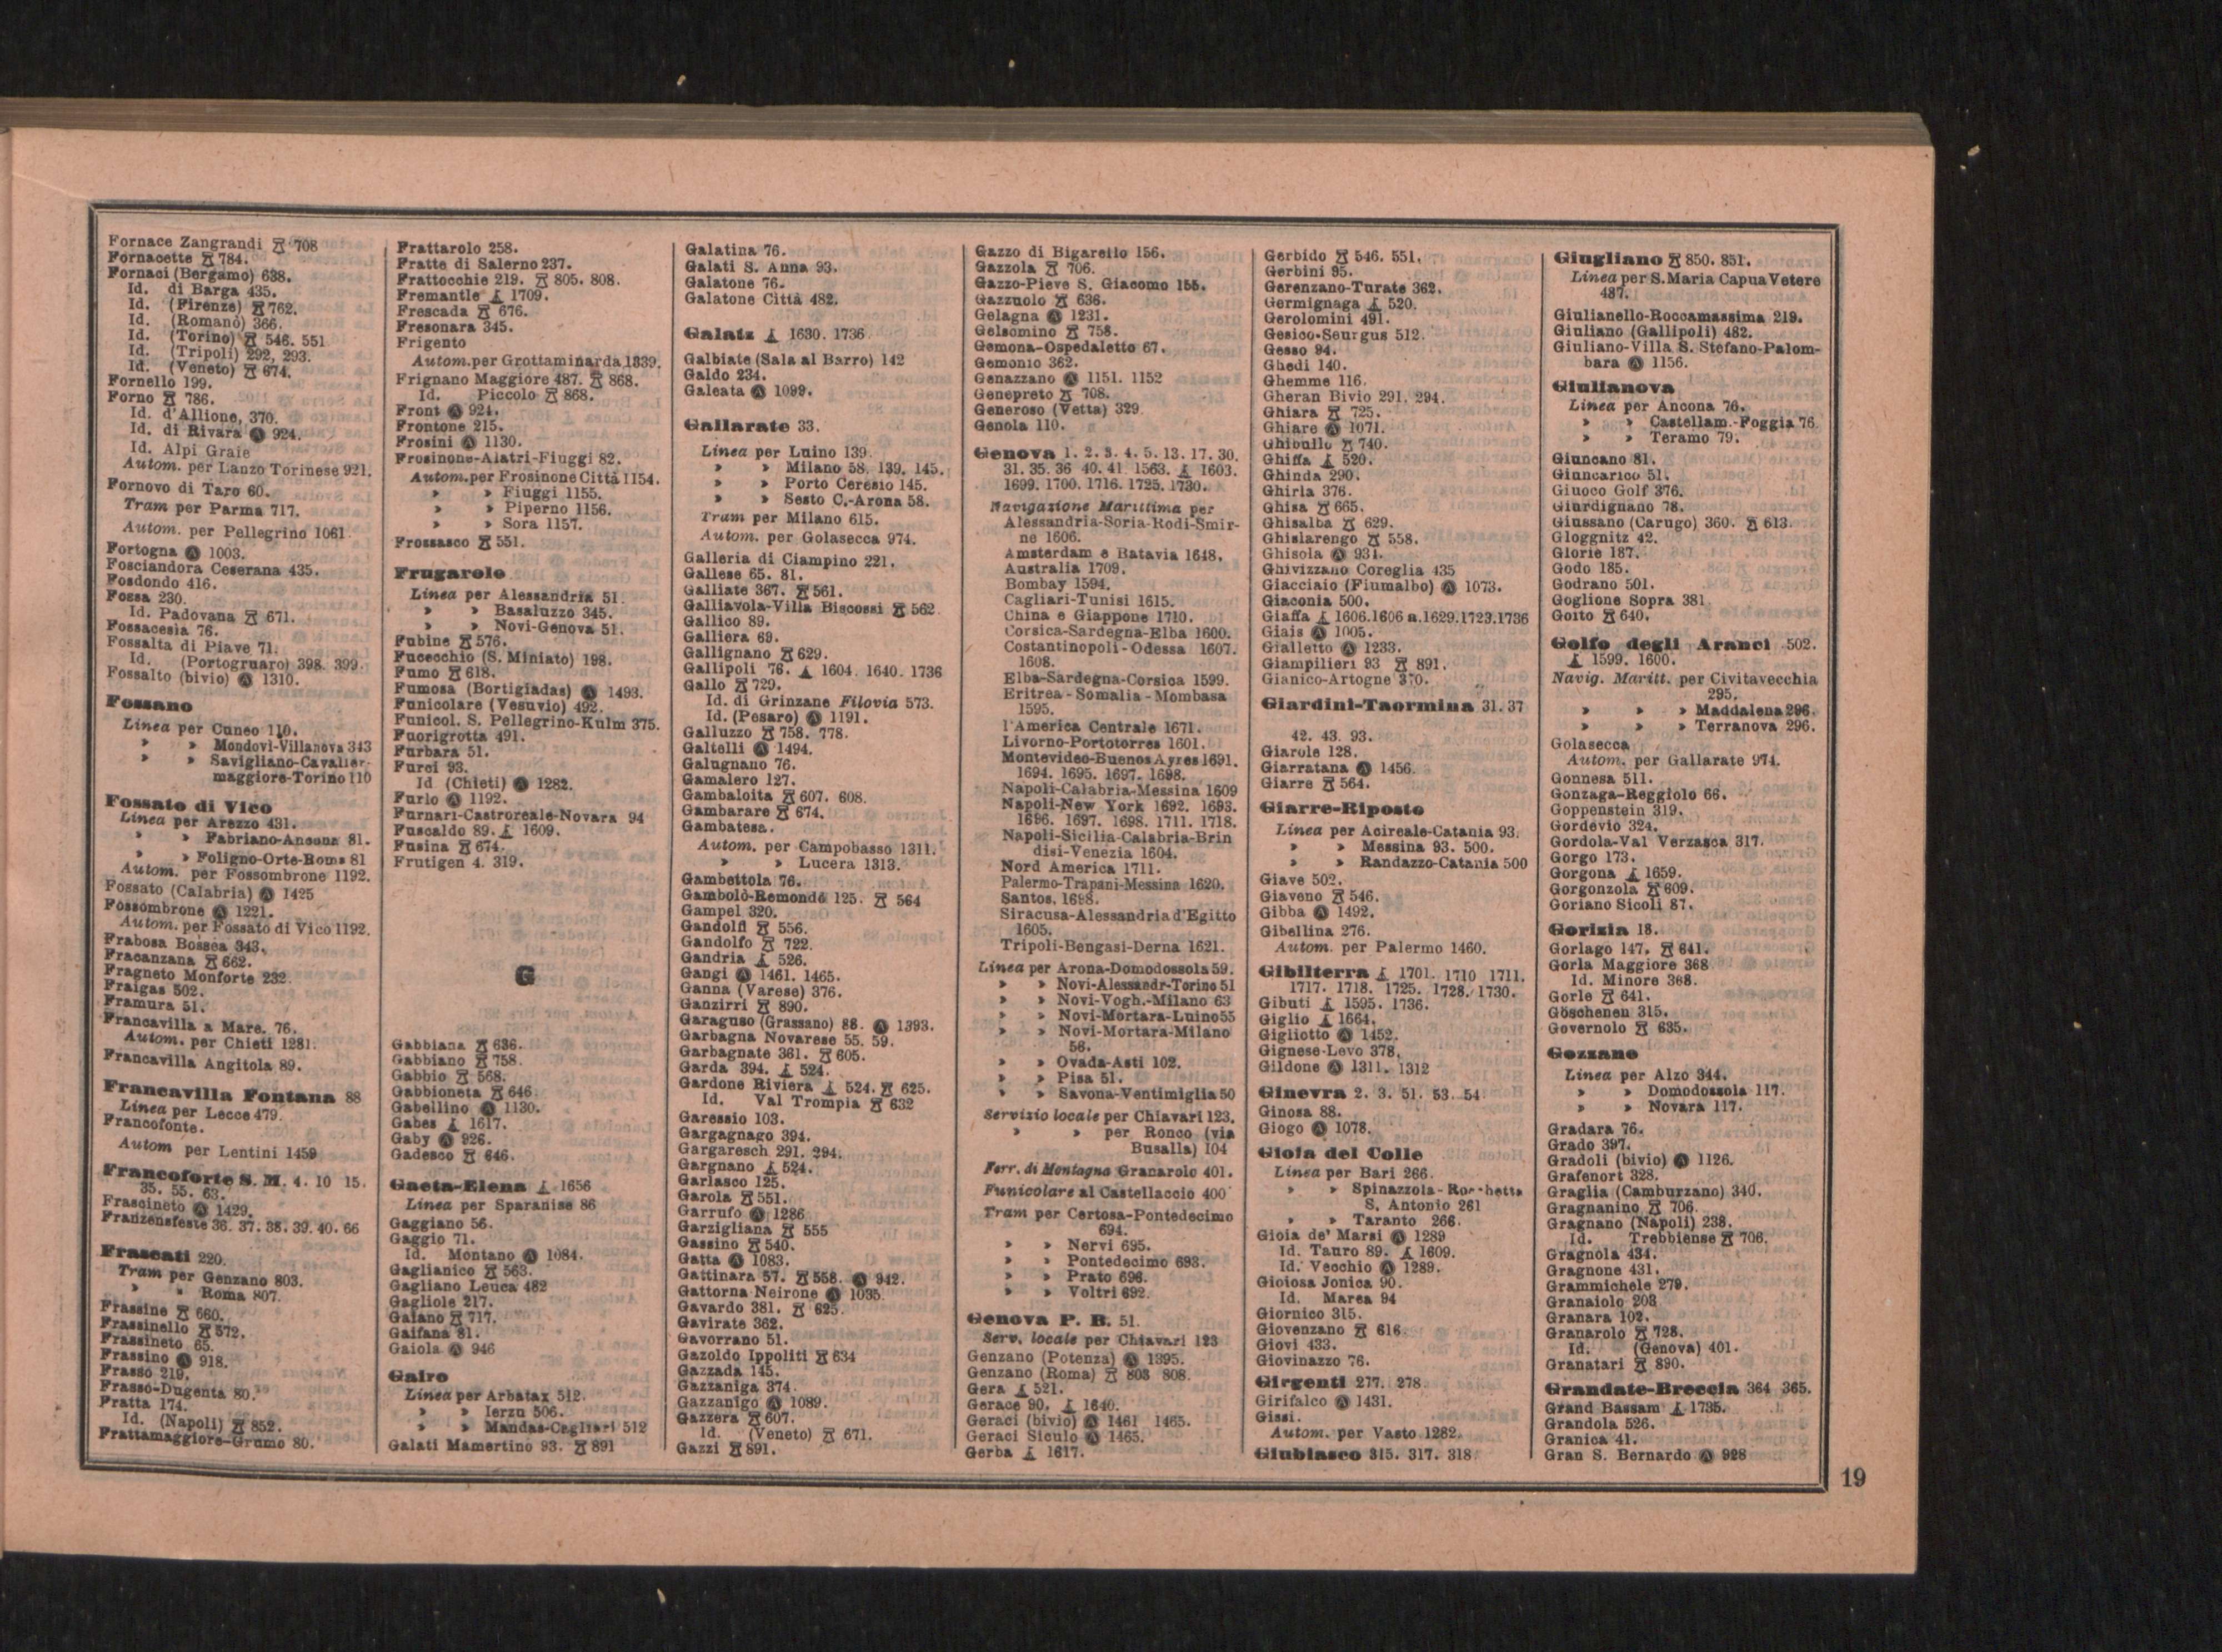 Fornace Zangrandi 708
Fornacette 784.
Fornaci (Bergamo) 638.
Id. di Barga 435.
Id. (Firenze) 762.
Id. (Romano) 366.
Id. (Torino) 546. 551
Id. (Tripoli) 292, 293.
Id. (Veneto) 674.
Fornello 199.
Forno 786.
Id. d'Allione, 370.
Id. di Rivara Ⓐ 924.
Id. Alpi Graie
Autom. per Lanzo Torinese 921.
Fornovo di Taro 60.
Tram per Parma 717.
Autom. per Pellegrino 1061.
Fortogna Ⓐ 1003.
Fosciandora Ceserana 435.
Fosdondo 416.
Fossa 230.
Id. Padovana 671.
Fossacesia 76.
Fossalta di Piave 71.
Id. (Portogruaro) 398. 399.
Fossalto (bivio) Ⓐ 1310.
Fossano
Linea per Cuneo 110.
» » Mondovì-Villanova 343
» » Savigliano-Cavalier-
maggiore-Torino 110
Fossato di Vico
Linea per Arezzo 431.
» » Fabriano-Ancona 81.
» » Foligno-Orte-Roma 81
Autom. per Fossombrone 1192.
Fossato (Calabria) Ⓐ 1425
Fossombrone Ⓐ 1221.
Autom. per Fossato di Vico 1192.
Frabosa Bossea 343.
Fracanzana 662.
Fragneto Monforte 232
Fraigas 502.
Framura 51.
Francavilla a Mare. 76.
Autom. per Chieti 1281.
Francavilla Angitola 89.
Francavilla Fontana 88
Linea per Lecce 479.
Francofonte.
Autom per Lentini 1459
Francoforte S. M. 4. 10 15.
35. 55. 63.
Frascineto Ⓐ 1429.
Franzensfeste 36. 37. 38. 39. 40. 66
Frascati 220.
Tram per Genzano 803.
» » Roma 807.
Frassine 660.
Frassinello 572.
Frassineto 65.
Frassino Ⓐ 918.
Frasso 219.
Frasso-Dugenta 80.
Fratta 174.
Id. (Napoli) 852.
Frattamaggiore-Grumo 80.
Frattarolo 258.
Fratte di Salerno 237.
Frattocchie 219. 805. 808.
Fremantle 1709.
Frescada 676.
Fresonara 345.
Frigento
Autom. per Grottaminarda 1339.
Frignano Maggiore 487. 868.
Id. Piccolo 868.
Front Ⓐ 924.
Frontone 215.
Frosini Ⓐ 1130.
Frosinone-Alatri-Fiuggi 82.
Autom. per Frosinone Città 1154.
» » Fiuggi 1155.
» » Piperno 1156.
» » Sora 1157.
Frossasco 551.
Frugarolo
Linea per Alessandria 51.
» » Basaluzzo 345.
» » Novi-Genova 51.
Fubine 576.
Fucecchio (S. Miniato) 198.
Fumo 618.
Fumosa (Bortigiadas) Ⓐ 1493.
Funicolare (Vesuvio) 492.
Funicol. S. Pellegrino-Kulm 375.
Fuorigrotta 491.
Furbara 51.
Furci 93.
Id (Chieti) Ⓐ 1282.
Furlo Ⓐ 1192.
Furnari-Castroreale-Novara 94
Fuscaldo 89. 1609.
Fusina 674.
Frutigen 4. 319.
G
Gabbiana 636.
Gabbiano 758.
Gabbio 568.
Gabbioneta 646
Gabellino Ⓐ 1130.
Gabes 1617.
Gaby Ⓐ 926.
Gadesco 646.
Gaeta-Elena 1656
Linea per Sparanise 86
Gaggiano 56.
Gaggio 71.
Id. Montano Ⓐ 1084.
Gaglianico 563.
Gagliano Leuca 482
Gagliole 217.
Gaiano 717.
Gaifana 81.
Gaiola Ⓐ 946
Gairo
Linea per Arbatax 512.
» » Ierzu 506.
» » Mandas-Cagliari 512
Galati Mamertino 93. 891
Galatina 76.
Galati S. Anna 93.
Galatone 76.
Galatone Città 482.
Galatz 1630. 1736
Galbiate (Sala al Barro) 142
Galdo 234.
Galeata Ⓐ 1099.
Gallarate 33.
Linea per Luino 139.
» » Milano 58. 139. 145.
» » Porto Ceresio 145.
» » Sesto C.-Arona 58.
Tram per Milano 615.
Autom. per Golasecca 974.
Galleria di Ciampino 221.
Gallese 65. 81.
Galliate 367. 561.
Galliavola-Villa Biscossi 562
Gallico 89.
Galliera 69.
Gallignano 629.
Gallipoli 76. 1604. 1640. 1736
Gallo 729.
Id. di Grinzane Filovia 573.
Id. (Pesaro) Ⓐ 1191.
Galluzzo 758. 778.
Galtelli Ⓐ 1494.
Galugnano 76.
Gamalero 127.
Gambaloita 607. 608.
Gambarare 674.
Gambatesa.
Autom. per Campobasso 1311.
» » Lucera 1313.
Gambettola 76.
Gambolò-Remondò 125. 564
Gampel 320.
Gandolfi 556.
Gandolfo 722.
Gandria 526.
Gangi Ⓐ 1461. 1465.
Ganna (Varese) 376.
Ganzirri 890.
Garaguso (Grassano) 88. Ⓐ 1393.
Garbagna Novarese 55. 59.
Garbagnate 361. 605.
Garda 394. 524.
Gardone Riviera 524. 625.
Id. Val Trompia 632
Garessio 103.
Gargagnago 394.
Gargaresch 291. 294.
Gargnano 524.
Garlasco 125.
Garola 551.
Garrufo Ⓐ 1286
Garzigliana 555
Gassino 540.
Gatta Ⓐ 1083.
Gattinara 57. 558. Ⓐ 942.
Gattorna Neirone Ⓐ 1035.
Gavardo 381. 625.
Gavirate 362.
Gavorrano 51.
Gazoldo Ippoliti 634
Gazzada 145.
Gazzaniga 374.
Gazzanigo Ⓐ 1089.
Gazzera 607.
Id. (Veneto) 671.
Gazzi 891.
Gazzo di Bigarello 156.
Gazzola 706.
Gazzo-Pieve S. Giacomo 155.
Gazzuolo 636.
Gelagna Ⓐ 1231.
Gelsomino 758.
Gemona-Ospedaletto 67.
Gemonio 362.
Genazzano Ⓐ 1151. 1152
Genepreto 708.
Generoso (Vetta) 329
Genola 110.
Genova 1. 2. 3. 4. 5. 13. 17. 30.
31. 35. 36 40. 41. 1563. 1603.
1699. 1700. 1716. 1725. 1730.
Navigazione Marittima per
Alessandria-Soria-Rodi-Smir-
ne 1606.
Amsterdam e Batavia 1648.
Australia 1709.
Bombay 1594.
Cagliari-Tunisi 1615.
China e Giappone 1710.
Corsica-Sardegna-Elba 1600.
Costantinopoli-Odessa 1607.
1608.
Elba-Sardegna-Corsica 1599.
Eritrea-Somalia-Mombasa
1595.
l'America Centrale 1671.
Livorno-Portotorres 1601.
Montevideo-Buenos Ayres 1691.
1694. 1695. 1697. 1698.
Napoli-Calabria-Messina 1609
Napoli-New York 1692. 1693.
1696. 1697. 1698. 1711. 1718.
Napoli-Sicilia-Calabria-Brin
disi-Venezia 1604.
Nord America 1711.
Palermo-Trapani-Messina 1620.
Santos. 1698.
Siracusa-Alessandria d'Egitto
1605.
Tripoli-Bengasi-Derna 1621.
Linea per Arona-Domodossola 59.
» » Novi-Alessandr-Torino 51
» » Novi-Vogh.-Milano 63
» » Novi-Mortara-Luino 55
» » Novi-Mortara-Milano
56.
» » Ovada-Asti 102.
» » Pisa 51.
» » Savona-Ventimiglia 50
Servizio locale per Chiavari 123.
» » per Ronco (via
Busalla) 104
Ferr. di Montagna Granarolo 401.
Funicolare al Castellaccio 400
Tram per Certosa-Pontedecimo
694.
» » Nervi 695.
» » Pontedecimo 693.
» » Prato 696.
» » Voltri 692.
Genova P. B. 51.
Serv. locale per Chiavari 123
Genzano (Potenza) Ⓐ 1395.
Genzano (Roma) 803 808.
Gera 521.
Gerace 90. 1640.
Geraci (bivio) Ⓐ 1461 1465.
Geraci Siculo Ⓐ 1465.
Gerba 1617.
Gerbido 546. 551.
Gerbini 95.
Gerenzano-Turate 362.
Germignaga 520.
Gerolomini 491.
Gesico-Seurgus 512.
Gesso 94.
Ghedi 140.
Ghemme 116.
Gheran Bivio 291. 294.
Ghiara 725.
Ghiare Ⓐ 1071.
Ghibullo 740.
Ghiffa 520.
Ghinda 290.
Ghirla 376.
Ghisa 665.
Ghisalba 629.
Ghislarengo 558.
Ghisola Ⓐ 931.
Ghivizzano Coreglia 435
Giacciaio (Fiumalbo) Ⓐ 1073.
Giaconia 500.
Giaffa 1606. 1606 a. 1629. 1723. 1736
Giais Ⓐ 1005.
Gialletto Ⓐ 1233.
Giampilieri 93 891.
Gianico-Artogne 370.
Giardini-Taormina 31. 37
42. 43. 93.
Giarole 128.
Giarratana Ⓐ 1456.
Giarre 564.
Giarre-Riposto
Linea per Acireale-Catania 93.
» » Messina 93. 500.
» » Randazzo-Catania 500
Giave 502.
Giaveno 546.
Gibba Ⓐ 1492.
Gibellina 276.
Autom. per Palermo 1460.
Gibilterra 1701. 1710 1711.
1717. 1718. 1725. 1728. 1730.
Gibuti 1595. 1736.
Giglio 1664.
Gigliotto Ⓐ 1452.
Gignese-Levo 378.
Gildone Ⓐ 1311. 1312
Ginevra 2. 3. 51. 53. 54.
Ginosa 88.
Giogo Ⓐ 1078.
Gioia del Colle
Linea per Bari 266.
» » Spinazzola-Rocchetta
S. Antonio 261
» » Taranto 266.
Gioia de' Marsi Ⓐ 1289
Id. Tauro 89. 1609.
Id. Vecchio Ⓐ 1289.
Gioiosa Jonica 90.
Id. Marea 94
Giornico 315.
Giovenzano 616
Giovi 433.
Giovinazzo 76.
Girgenti 277. 278.
Girifalco Ⓐ 1431.
Gissi.
Autom. per Vasto 1282.
Giubiasco 315. 317. 318
Giugliano 850. 851.
Linea per S. Maria Capua Vetere
487.
Giulianello-Roccamassima 219.
Giuliano (Gallipoli) 482.
Giuliano-Villa S. Stefano-Palom-
bara Ⓐ 1156.
Giulianova
Linea per Ancona 76.
» » Castellam.-Foggia 76.
» » Teramo 79.
Giuncano 81.
Giuncarico 51.
Giuoco Golf 376.
Giurdignano 78.
Giussano (Carugo) 360. 613.
Gloggnitz 42.
Glorie 187.
Godo 185.
Godrano 501.
Goglione Sopra 381
Goito 640.
Golfo degli Aranci 502.
1599. 1600.
Navig. Maritt. per Civitavecchia
295.
» » » Maddalena 296.
» » » Terranova 296.
Golasecca
Autom. per Gallarate 974.
Gonnesa 511.
Gonzaga-Reggiolo 66.
Goppenstein 319.
Gordevio 324.
Gordola-Val Verzasca 317.
Gorgo 173.
Gorgona 1659.
Gorgonzola 609.
Goriano Sicoli 87.
Gorizia 18.
Gorlago 147. 641.
Gorla Maggiore 368
Id. Minore 368.
Gorle 641.
Göschenen 315.
Governolo 635.
Gozzano
Linea per Alzo 344.
» » Domodossola 117.
» » Novara 117.
Gradara 76.
Grado 397.
Gradoli (bivio) Ⓐ 1126.
Grafenort 328.
Graglia (Camburzano) 340.
Gragnanino 706.
Gragnano (Napoli) 238.
Id. Trebbiense 706.
Gragnola 434.
Gragnone 431.
Grammichele 279.
Granaiolo 203
Granara 102.
Granarolo 728.
Id. (Genova) 401.
Granatari 890.
Grandate-Breccia 364 365.
Grand Bassam 1735.
Grandola 526.
Granica 41.
Gran S. Bernardo Ⓐ 928
19